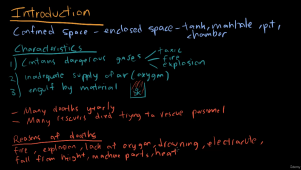 Introduction
Confined space - enclosed space - tank, manhole, pit,
chamber
Characteristics
1) Contains dangerous gases
toxic
fire
explosion
2) inadequate supply of air (oxygen)
3) engulf by material
- Many deaths yearly
- Many rescuers died trying to rescue personnel
Reasons of deaths
fire, explosion, lack of oxygen, drowning, electrocute,
fall from height, machine parts, heat